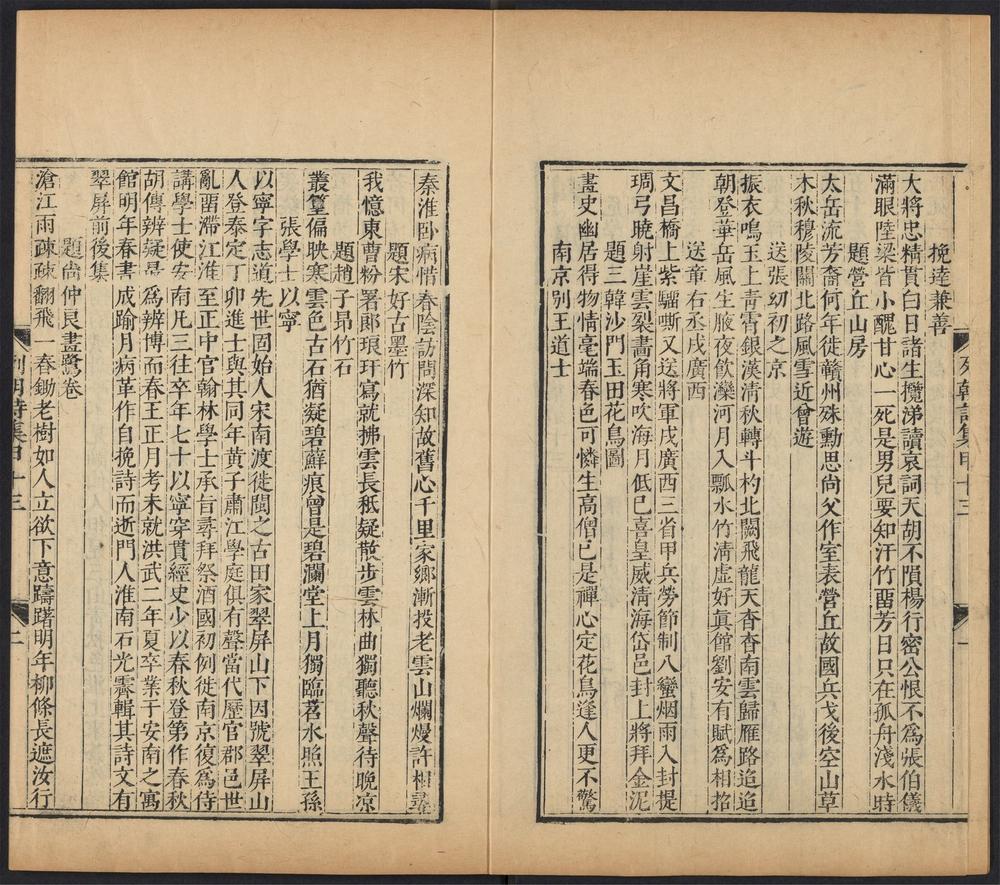 挽逵兼善
大將忠精貫白日諸生攬涕讀哀詞天胡不隕楊行密公恨不為張伯儀
滿眼陸梁皆小醜甘心一死是男兒要知汗竹畱芳日只在孤舟淺水時
題營丘山房
太岳流芳裔何年徙贛州殊勳思尙父作室表營丘故國兵戈後空山草
木秋穆陵關北路風雪近曾遊
送張幼初之京
振衣鳴玉上靑霄銀漢淸秋轉斗杓北闕飛龍天杳杳南雲歸雁路迢迢
朝登華岳風生腋夜飲灤河月入瓢水竹淸虛好眞館劉安有賦爲相招
送章右丞戍廣西
文昌橋上紫騮嘶又送將軍戍廣西三省甲兵勞節制八蠻烟雨入封提
琱弓曉射崖雲裂畵角寒吹海月低已喜皇威淸海岱邑封上將拜金泥
題三韓沙門玉田花鳥圖
畫史幽居得物情毫端春色可憐生高僧已是禪心定花鳥逢人更不驚
南京別王道士
列朝詩集甲十三
一
秦淮卧病惜春陰訪問深知故舊心千里家鄉漸投老雲山爛熳許相尋
題宋好古墨竹
我憶東曹粉署郎琅玕寫就拂雲長秪疑散步雲林曲獨聽秋聲待晚凉
題趙子昂竹石
叢篁偏映寒雲色古石猶凝碧蘚痕曾是碧瀾堂上月獨臨苕水照王孫
張學士以寧
以寧字志道先世固始人宋南渡徙閩之古田家翠屏山下因號翠屏山
人登泰定丁卯進士與其同年黃子肅江學庭俱有聲當代歷官郡邑世
亂畱滯江淮至正中官翰林學士承旨尋拜祭酒國初例徙南京復爲侍
講學士使安南凡三往卒年七十以寧穿貫經史少以春秋登第作春秋
胡傳辨疑㝡爲辨博而春王正月考未就洪武二年夏卒業于安南之寓
館明年春書成踰月病革作自挽詩而逝門人淮南石光霽輯其詩文有
翠屏前後集
題尙仲民畫鷺卷
滄江雨疎疎翻飛一舂鋤老樹如人立欲下意躊躇明年柳條長遮汝行
列朝詩集甲十三
二